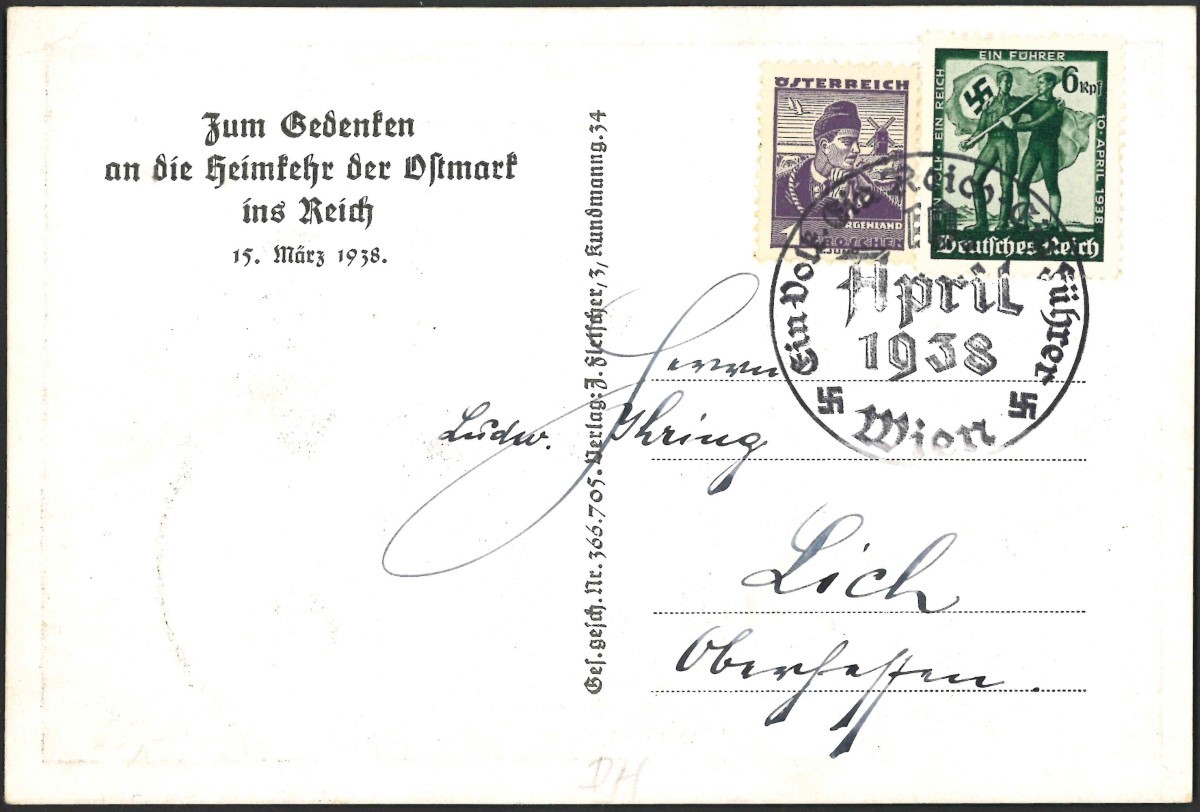 Zum Gedenken
an die Heimkehr der Ostmark
ins Reich
15. März 1938.
Ges. gesch. Nr. 366.705. Verlag: J. Fletscher, 3, Kundmanng. 34
ÖSTERREICH
1
RGENLAND
1 GROSCHEN
EIN VOLK · EIN REICH
EIN FÜHRER
10 · APRIL 1938
6 Rpf
Deutsches Reich
Ein Volk, Ein Reich, Ein Führer
April
1938
Wien
Herrn
Ludw. Ihring
Lich
Oberhessen.
DH